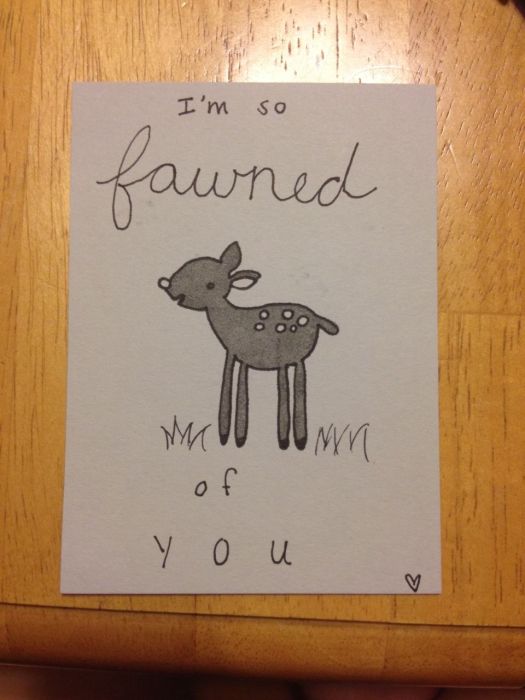 I'm so
fawned
of
you